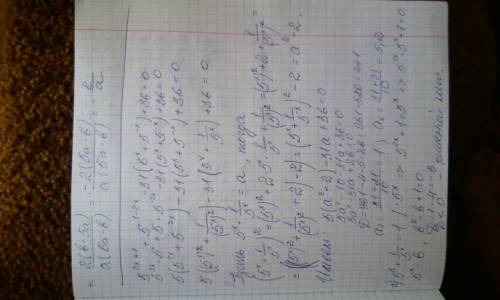 = 2(b-5a) / a(5a-b) = -2(5a-b) / a(5a-b) = -2/a
5^(2x+1) + 5^(1-2x) - 31(5^x + 5^(-x)) + 36 = 0
5·5^(2x) + 5·5^(-2x) - 31(5^x + 5^(-x)) + 36 = 0
5(5^(2x) + 5^(-2x)) - 31(5^x + 5^(-x)) + 36 = 0
5((5^x)² + 1/(5^x)²) - 31(5^x + 1/5^x) + 36 = 0
Пусть 5^x + 1/5^x = a, тогда
(5^x + 1/5^x)² = (5^x)² + 2·5^x·1/5^x + 1/(5^x)² = (5^x)² + 2 + 1/(5^x)² =
= ((5^x)² + 1/(5^x)² + 2) - 2 = (5^x + 1/5^x)² - 2 = a² - 2.
Имеем: 5(a² - 2) - 31a + 36 = 0
5a² - 10 - 31a + 36 = 0
5a² - 31a + 26 = 0
D = 961 - 4·5·26 = 961 - 520 = 441
a₁ = (31-21)/10 = 1; a₂ = (31+21)/10 = 5,2
1) 5^x + 1/5^x = 1 |·5^x => 5^(2x) + 1 = 5^x => 5^(2x) - 5^x + 1 = 0
5^x = b, b² - b + 1 = 0
D = 1 - 4 = -3
D < 0 - решений нет.